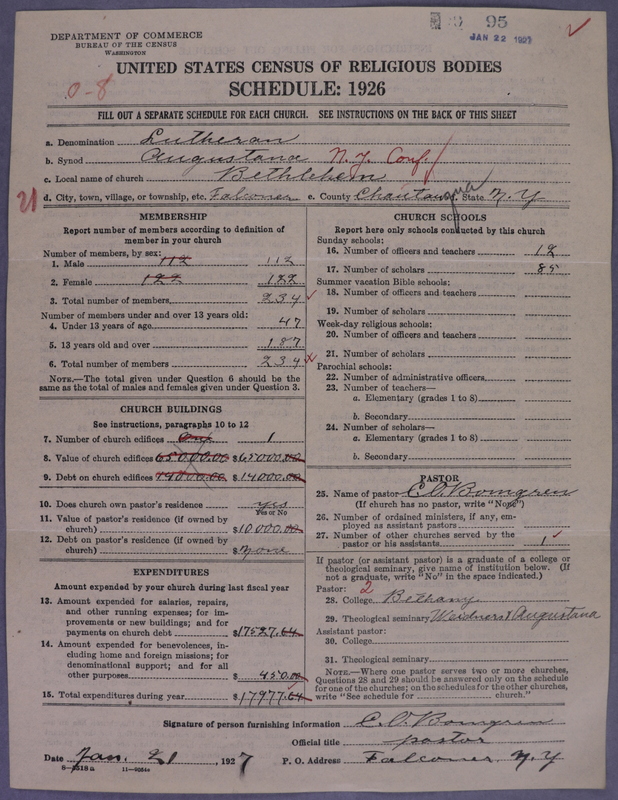 95
JAN 22 1927
DEPARTMENT OF COMMERCE
BUREAU OF THE CENSUS
WASHINGTON
UNITED STATES CENSUS OF RELIGIOUS BODIES
0-8
SCHEDULE: 1926
FILL OUT A SEPARATE SCHEDULE FOR EACH CHURCH. SEE INSTRUCTIONS ON THE BACK OF THIS SHEET
a. Denomination Lutheran
b. Synod Augustana N.Y. Conf.
c. Local name of church Bethlehem
21
d. City, town, village, or township, etc. Falconer e. County Chautauqua State N.Y
MEMBERSHIP
Report number of members according to definition of
member in your church
Number of members, by sex:
1. Male 112 112
2. Female 122 122
3. Total number of members 234
Number of members under and over 13 years old:
4. Under 13 years of age 47
5. 13 years old and over 187
6. Total number of members 234
NOTE.—The total given under Question 6 should be the
same as the total of males and females given under Question 3.
CHURCH BUILDINGS
See instructions, paragraphs 10 to 12
7. Number of church edifices One 1
8. Value of church edifices 65000.00 $65000.00
9. Debt on church edifices 14000.00 $14000.00
10. Does church own pastor's residence yes
Yes or No
11. Value of pastor's residence (if owned by
church) $10000.00
12. Debt on pastor's residence (if owned by
church) $None
EXPENDITURES
Amount expended by your church during last fiscal year
13. Amount expended for salaries, repairs,
and other running expenses; for im-
provements or new buildings; and for
payments on church debt $17527.64
14. Amount expended for benevolences, in-
cluding home and foreign missions; for
denominational support; and for all
other purposes $450.00
15. Total expenditures during year $17977.64
CHURCH SCHOOLS
Report here only schools conducted by this church
Sunday schools:
16. Number of officers and teachers 12
17. Number of scholars 85
Summer vacation Bible schools:
18. Number of officers and teachers
19. Number of scholars
Week-day religious schools:
20. Number of officers and teachers
21. Number of scholars
Parochial schools:
22. Number of administrative officers
23. Number of teachers—
a. Elementary (grades 1 to 8)
b. Secondary
24. Number of scholars—
a. Elementary (grades 1 to 8)
b. Secondary
PASTOR
25. Name of pastor C.O. Bomgren
(If church has no pastor, write "None")
26. Number of ordained ministers, if any, em-
ployed as assistant pastors
27. Number of other churches served by the
pastor or his assistants 1
If pastor (or assistant pastor) is a graduate of a college or
theological seminary, give name of institution below. (If
not a graduate, write "No" in the space indicated.)
Pastor: 2
28. College Bethany
29. Theological seminary Weidner & Augustana
Assistant pastor:
30. College
31. Theological seminary
NOTE.—Where one pastor serves two or more churches,
Questions 28 and 29 should be answered only on the schedule
for one of the churches; on the schedules for the other churches,
write "See schedule for church."
Signature of person furnishing information C.O. Bomgren
Official title pastor
Date Jan. 21, 1927 P. O. Address Falconer N.Y